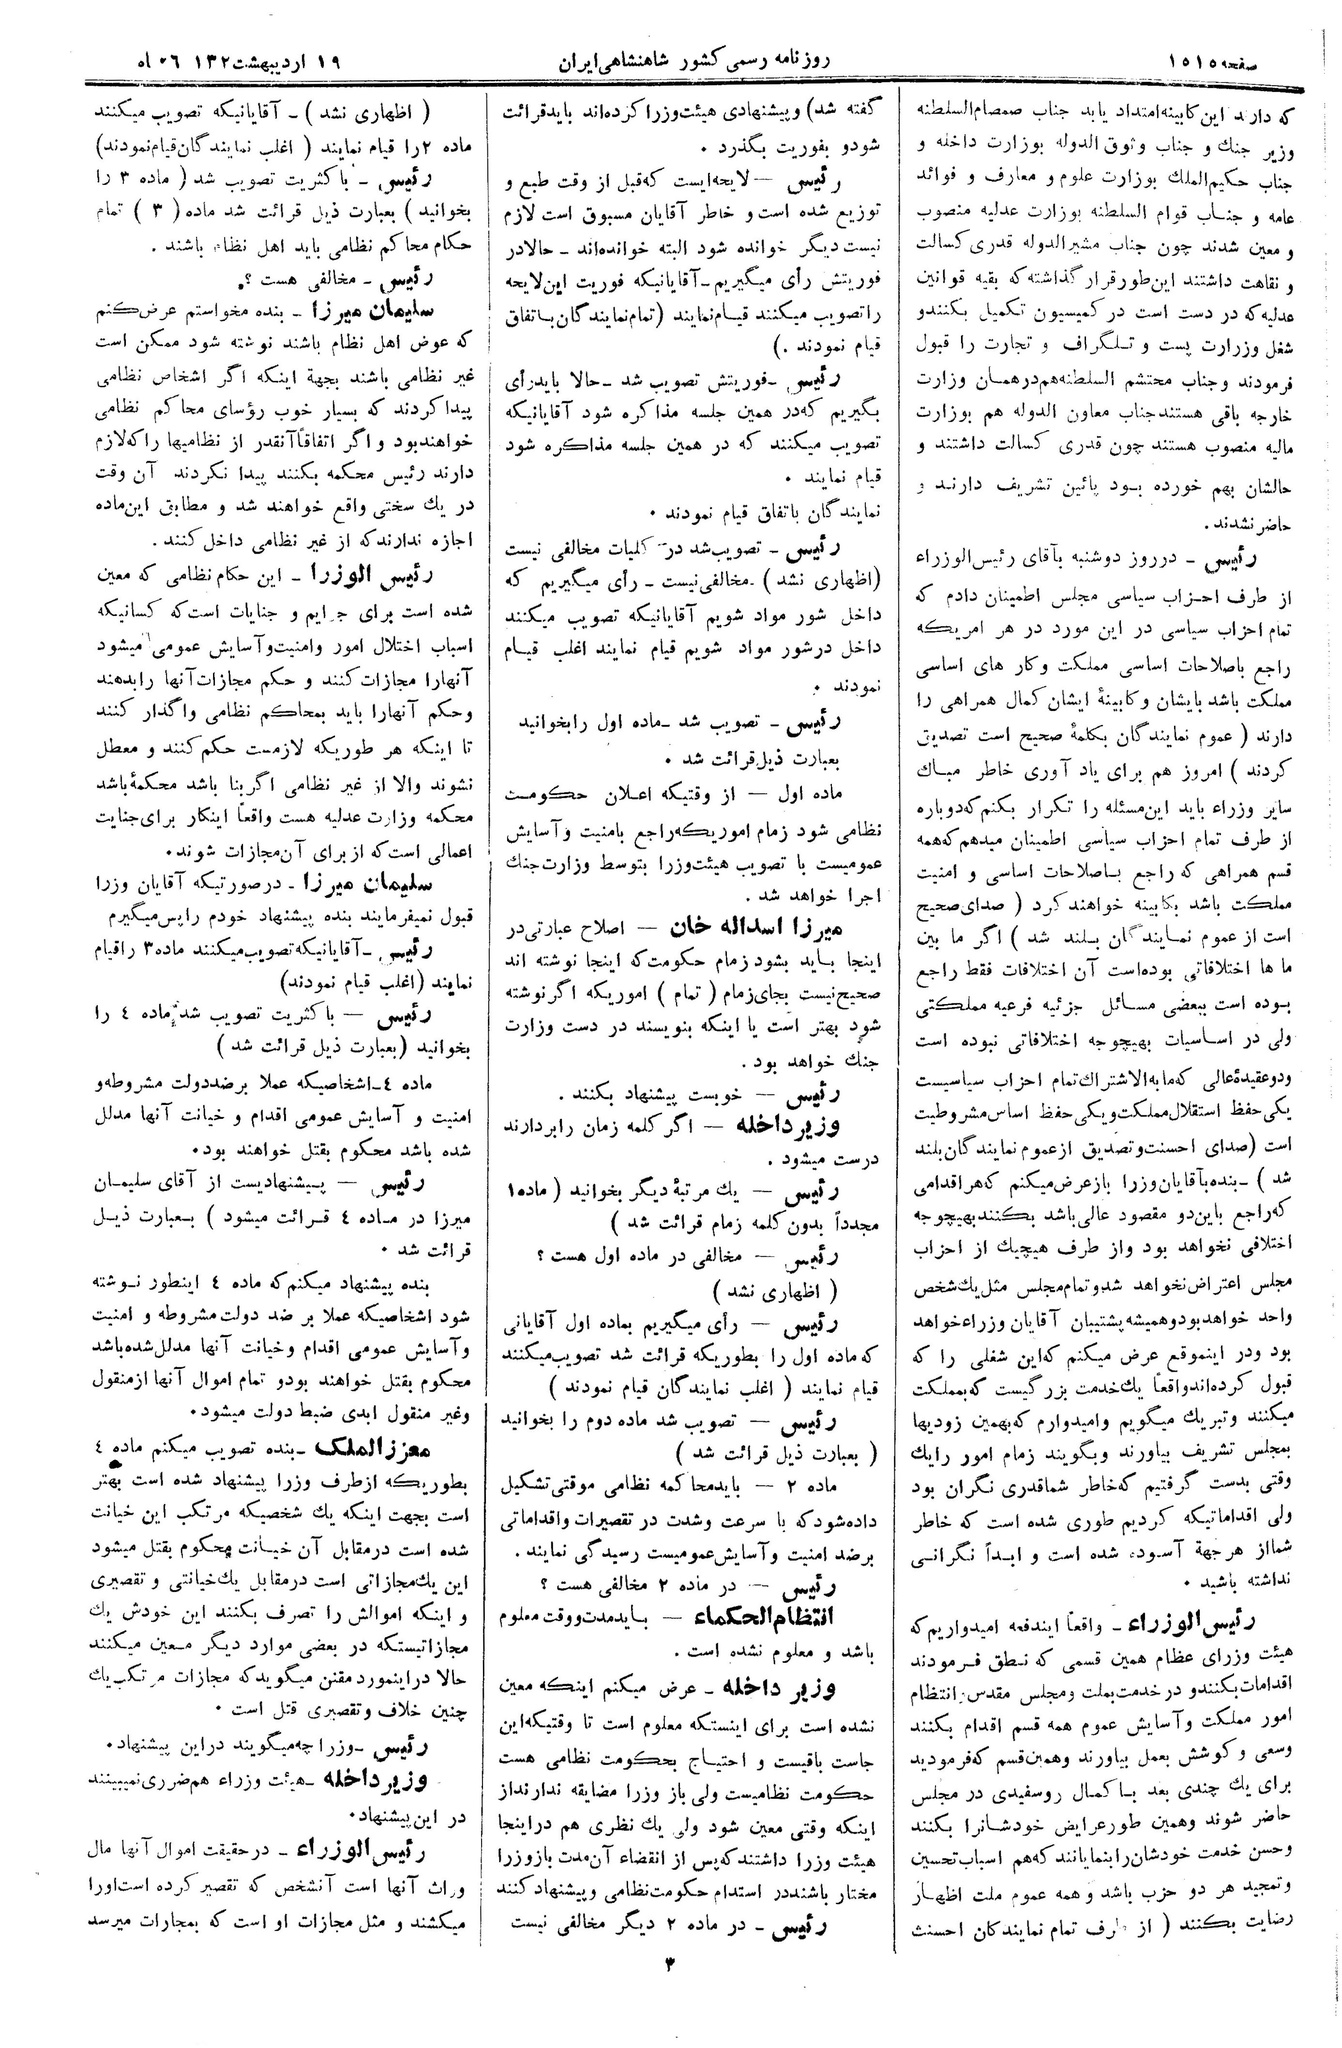 صفحه ۱۵۱۵
روزنامه رسمی کشور شاهنشاهی ایران
۱۹ اردیبهشت ماه
که دارند این کابینه امتداد یابد جناب صمصام السلطنه
وزیر جنك و جناب وثوق الدوله بوزارت داخله و
جناب حکیم الملك بوزارت علوم و معارف و فوائد
عامه و جناب قوام السلطنه بوزارت عدلیه منصوب
و معین شدند چون جناب مشیرالدوله قدری کسالت
و نقاهت داشتند این طور قرار گذاشته که بقیه قوانین
عدلیه که در دست است در کمیسیون تکمیل بکنند و
شغل وزرارت پست و تلگراف و تجارت را قبول
فرمودند و جناب محتشم السلطنه هم در همان وزارت
خارجه باقی هستند جناب معاون الدوله هم بوزارت
مالیه منصوب هستند چون قدری کسالت داشتند و
حالشان بهم خورده بود پائین تشریف دارند و
حاضر نشدند.
رئیس - در روز دوشنبه بآقای رئیس الوزراء
از طرف احزاب سیاسی مجلس اطمینان دادم که
تمام احزاب سیاسی در این مورد در هر امریکه
راجع باصلاحات اساسی مملکت و کار های اساسی
مملکت باشد بایشان و کابینۀ ایشان کمال همراهی را
دارند ( عموم نمایندگان بکلمۀ صحیح است تصدیق
کردند ) امروز هم برای یاد آوری خاطر مبارک
سایر وزراء باید این مسئله را تکرار بکنم که دوباره
از طرف تمام احزاب سیاسی اطمینان میدهم که همه
قسم همراهی که راجع باصلاحات اساسی و امنیت
مملکت باشد بکابینه خواهند کرد ( صدای صحیح
است از عموم نمایندگان بلند شد ) اگر ما بین
ما ها اختلافاتی بوده است آن اختلافات فقط راجع
بوده است ببعضی مسائل جزئیه فرعیه مملکتی
ولی در اساسیات بهیچوجه اختلافاتی نبوده است
و دو عقیدۀ عالی که ما به الاشتراك تمام احزاب سیاسیست
یکی حفظ استقلال مملکت و یکی حفظ اساس مشروطیت
است (صدای احسنت و تصدیق از عموم نمایندگان بلند
شد ) - بنده بآقایان وزرا باز عرض میکنم که هر اقدامی
که راجع باین دو مقصود عالی باشد بکنند بهیچوجه
اختلافی نخواهد بود و از طرف هیچیك از احزاب
مجلس اعتراض نخواهد شد و تمام مجلس مثل یك شخص
واحد خواهد بود و همیشه پشتیبان آقایان وزراء خواهد
بود و در اینموقع عرض میکنم که این شغلی را که
قبول کرده اند واقعاً یك خدمت بزرگیست که بمملکت
میکنند و تبریك میگویم و امیدوارم که بهمین زودیها
بمجلس تشریف بیاورند و بگویند زمام امور را یك
وقتی بدست گرفتیم که خاطر شما قدری نگران بود
ولی اقداماتیکه کردیم طوری شده است که خاطر
شما از هر جهة آسوده شده است و ابداً نگرانی
نداشته باشید .
رئیس الوزراء - واقعاً ایندفعه امیدواریم که
هیئت وزرای عظام همین قسمی که نطق فرمودند
اقدامات بکنند و در خدمت بملت و مجلس مقدس و انتظام
امور مملکت و آسایش عموم همه قسم اقدام بکنند
وسعی و کوشش بعمل بیاورند و همین قسم که فرمودید
برای یك چندی بعد با کمال روسفیدی در مجلس
حاضر شوند و همین طور عرایض خودشانرا بکنند
و حسن خدمت خودشان را بنمایانند که هم اسباب تحسین
و تمجید هر دو حزب باشد و همه عموم ملت اظهار
رضایت بکنند ( از طرف تمام نمایندگان احسنت
گفته شد) و پیشنهادی هیئت وزرا کرده اند باید قرائت
شود و بفوریت بگذرد .
رئیس - لایحه ایست که قبل از وقت طبع و
توزیع شده است و خاطر آقایان مسبوق است لازم
نیست دیگر خوانده شود البته خوانده اند - حالا در
فوریتش رأی میگیریم - آقایانیکه فوریت این لایحه
را تصویب میکنند قیام نمایند (تمام نمایندگان باتفاق
قیام نمودند .)
رئیس - فوریتش تصویب شد - حالا باید رأی
بگیریم که در همین جلسه مذاکره شود آقایانیکه
تصویب میکنند که در همین جلسه مذاکره شود
قیام نمایند .
نمایندگان باتفاق قیام نمودند .
رئیس - تصویب شد در کلیات مخالفی نیست
(اظهاری نشد ) - مخالفی نیست - رأی میگیریم که
داخل شور مواد شویم آقایانیکه تصویب میکنند
داخل در شور مواد شویم قیام نمایند اغلب قیام
نمودند .
رئیس - تصویب شد - ماده اول را بخوانید
بعبارت ذیل قرائت شد .
ماده اول - از وقتیکه اعلان حکومت
نظامی شود زمام اموریکه راجع بامنیت و آسایش
عمومیست با تصویب هیئت وزرا بتوسط وزارت جنك
اجرا خواهد شد .
میرزا اسداله خان - اصلاح عبارتی در
اینجا باید بشود زمام حکومت که اینجا نوشته اند
صحیح نیست بجای زمام ( تمام ) اموریکه اگر نوشته
شود بهتر است یا اینکه بنویسند در دست وزارت
جنك خواهد بود .
رئیس - خوبست پیشنهاد بکنند .
وزیر داخله - اگر کلمه زمان را بردارند
درست میشود .
رئیس - یك مرتبۀ دیگر بخوانید ( ماده ۱
مجدداً بدون کلمه زمام قرائت شد )
رئیس - مخالفی در ماده اول هست ؟
( اظهاری نشد )
رئیس - رأی میگیریم بماده اول آقایانی
که ماده اول را بطوریکه قرائت شد تصویب میکنند
قیام نمایند ( اغلب نمایندگان قیام نمودند )
رئیس - تصویب شد ماده دوم را بخوانید
( بعبارت ذیل قرائت شد )
ماده ۲ - باید محاکمه نظامی موقتی تشکیل
داده شود که با سرعت و شدت در تقصیرات و اقداماتی
بر ضد امنیت و آسایش عمومیست رسیدگی نمایند .
رئیس - در ماده ۲ مخالفی هست ؟
انتظام الحکماء - باید مدت و وقت معلوم
باشد و معلوم نشده است .
وزیر داخله - عرض میکنم اینکه معین
نشده است برای اینستکه معلوم است تا وقتیکه این
جاست باقیست و احتیاج بحکومت نظامی هست
حکومت نظامیست ولی باز وزرا مضایقه ندارند از
اینکه وقتی معین شود ولی یك نظری هم در اینجا
هیئت وزرا داشتند که پس از انقضاء آن مدت باز وزرا
مختار باشند در استدام حکومت نظامی و پیشنهاد کنند
رئیس - در ماده ۲ دیگر مخالفی نیست
( اظهاری نشد ) - آقایانیکه تصویب میکنند
ماده ۲ را قیام نمایند ( اغلب نمایندگان قیام نمودند)
رئیس - باکثریت تصویب شد ( ماده ۳ را
بخوانید ) بعبارت ذیل قرائت شد ماده ( ۳ ) تمام
حکام محاکم نظامی باید اهل نظام باشند .
رئیس - مخالفی هست ؟
سلیمان میرزا - بنده مخواستم عرض کنم
که عوض اهل نظام باشند نوشته شود ممکن است
غیر نظامی باشند بجهة اینکه اگر اشخاص نظامی
پیدا کردند که بسیار خوب رؤسای محاکم نظامی
خواهند بود و اگر اتفاقاً آنقدر از نظامیها را که لازم
دارند رئیس محکمه بکنند پیدا نکردند آن وقت
در یك سختی واقع خواهند شد و مطابق این ماده
اجازه ندارند که از غیر نظامی داخل کنند .
رئیس الوزرا - این حکام نظامی که معین
شده است برای جرایم و جنایات است که کسانیکه
اسباب اختلال امور و امنیت و آسایش عمومی میشود
آنها را مجازات کنند و حکم مجازات آنها را بدهند
و حکم آنهارا باید بمحاکم نظامی واگذار کنند
تا اینکه هر طوریکه لازمست حکم کنند و معطل
نشوند والا از غیر نظامی اگر بنا باشد محکمۀ باشد
محکمه وزارت عدلیه هست واقعاً اینکار برای جنایت
اعمالی است که از برای آن مجازات شوند.
سلیمان میرزا - در صورتیکه آقایان وزرا
قبول نمیفرمایند بنده پیشنهاد خودم را پس میگیرم
رئیس - آقایانیکه تصویب میکنند ماده ۳ را قیام
نمایند (اغلب قیام نمودند)
رئیس - باکثریت تصویب شد ماده ٤ را
بخوانید (بعبارت ذیل قرائت شد )
ماده ٤ - اشخاصیکه عملا بر ضد دولت مشروطه و
امنیت و آسایش عمومی اقدام و خیانت آنها مدلل
شده باشد محکوم بقتل خواهند بود.
رئیس - پیشنهادیست از آقای سلیمان
میرزا در ماده ٤ قرائت میشود ) بعبارت ذیل
قرائت شد .
بنده پیشنهاد میکنم که ماده ٤ اینطور نوشته
شود اشخاصیکه عملا بر ضد دولت مشروطه و امنیت
و آسایش عمومی اقدام و خیانت آنها مدلل شده باشد
محکوم بقتل خواهند بود و تمام اموال آنها از منقول
وغیر منقول ابدی ضبط دولت میشود.
معزز الملک - بنده تصویب میکنم ماده ٤
بطوریکه از طرف وزرا پیشنهاد شده است بهتر
است بجهت اینکه یك شخصیکه مرتکب این خیانت
شده است در مقابل آن خیانت محکوم بقتل میشود
این یك مجازاتی است در مقابل یك خیانتی و تقصیری
و اینکه اموالش را تصرف بکنند این خودش یك
مجازاتیستکه در بعضی موارد دیگر معین میکنند
حالا در اینمورد مقنن میگوید که مجازات مرتکب یك
چنین خلاف و تقصیری قتل است .
رئیس - وزرا چه میگویند در این پیشنهاد.
وزیر داخله - هیئت وزراء هم ضرری نمیبینند
در این پیشنهاد.
رئیس الوزراء - در حقیقت اموال آنها مال
وراث آنها است آنشخص که تقصیر کرده است او را
میکشند و مثل مجازات او است که بمجازات میرسد
۳